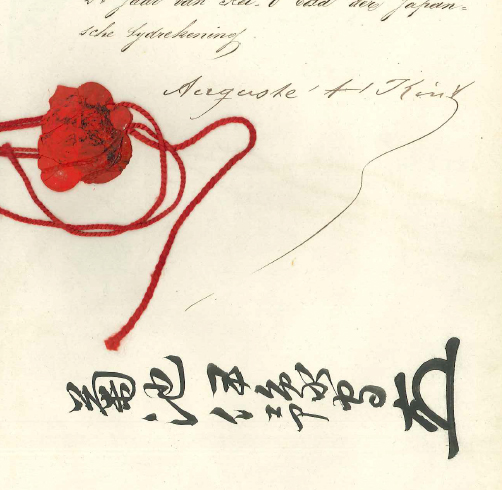 jaar van Kei-o der Japan-
sche tydrekening
Auguste t' Kint
菊池伊豫守